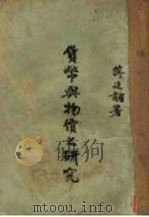 蔣廷黻著
貨幣與物價之研究